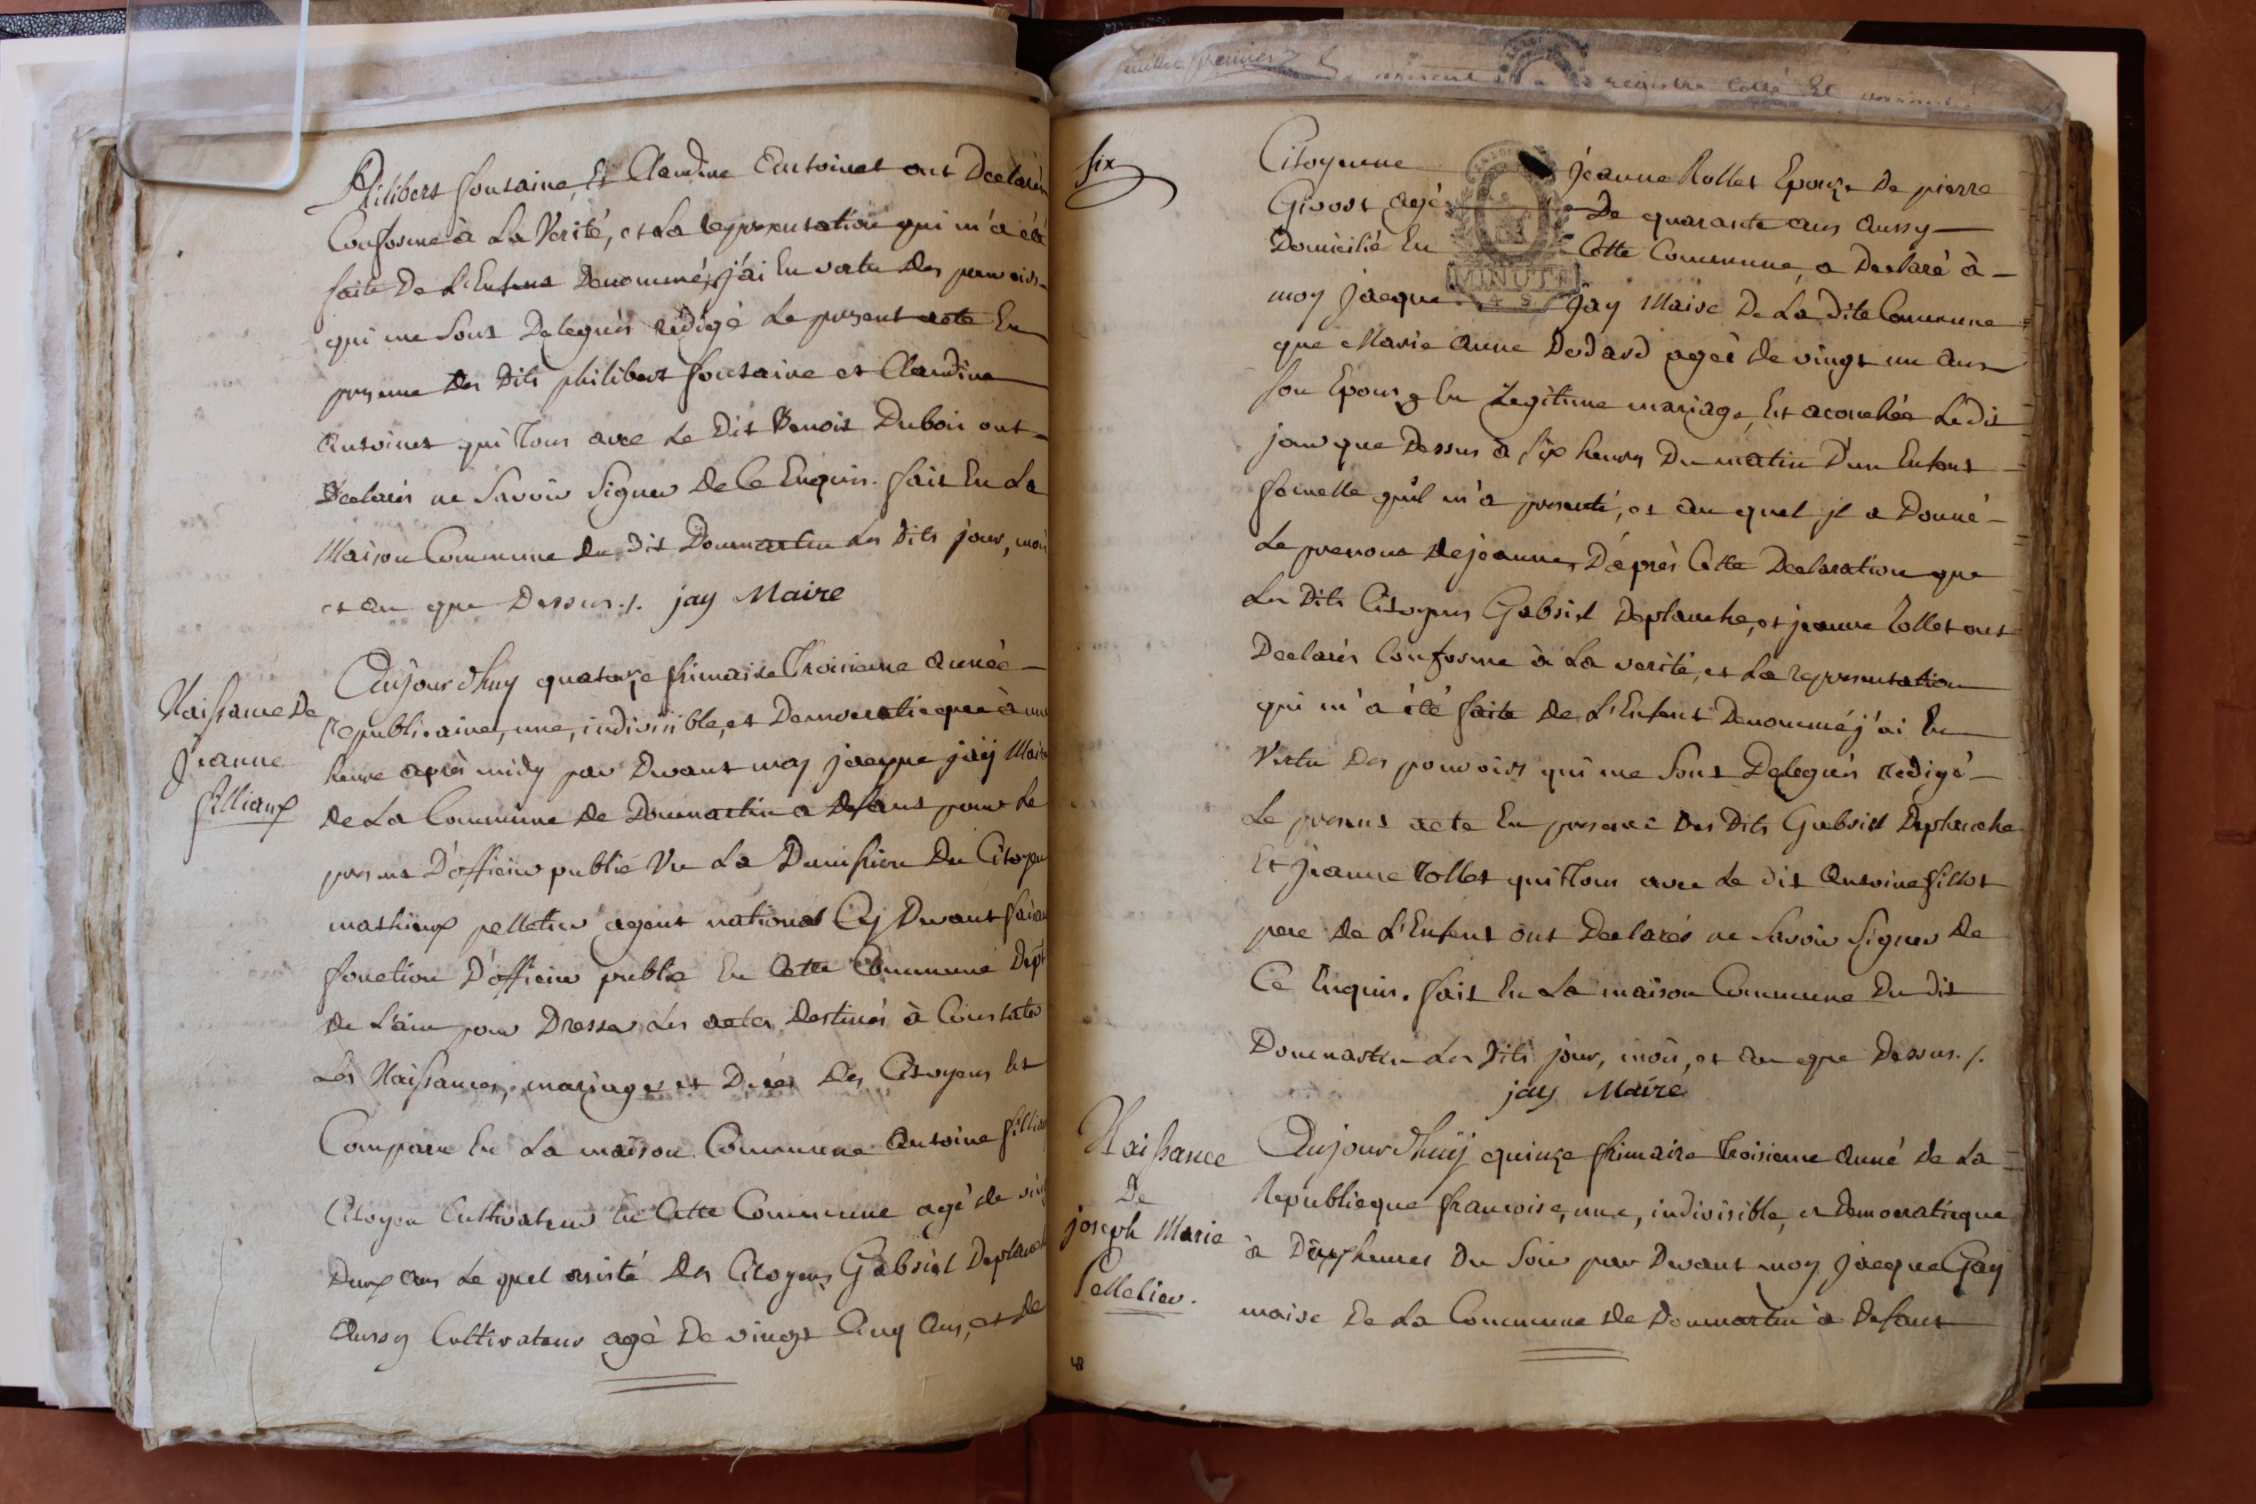 Philibert fontaine, Et Claudine Entoinet ont Declarés
Conforme à La Verité, et La representation qui m'a été
faite De L'Enfant Denommé, j'ai En vertu des pouvoirs
qui me sont Delegués rédigé Le present acte En
presence des Dits philibert fontaine et Claudine
antoinet qui Tous avec Le Dit Benoit Dubois ont
Declarés ne Savoir Signer De Ce Enquis. fait En La
Maison Commune du dit Dommartin Les Dits jour, mois
et an que Dessus ./. jay Maire
Naissance De
Jeanne
filliaux
Aujourd'huy quatorze frimaire Troisieme année
republicaine, une, indivisible, et Democratiqque à une
heure après midy par Devant moy jacque jaÿ Maire
De La Commune de Dommartin a Defaut pour Le
present D'officier public Vu La Demission Du Citoyen
mathieux pelletier agent national Cy Devant faisant
fonction D'officier public En Cette Commune Dept
de L'ain pour Dresser Les actes Destinés à Constater
Les Naissances, mariages et Décés Des Citoyens Est
Comparu En La maison Commune Antoine
Citoyen Cultivateur En Cette Commune agé de vingt
Deux ans Le quel assisté des Citoyens Gabriel Deplanche
Aussy Cultivateur agé De vingt Cinq Ans, et de
six
Citoyenne jeanne Rollet Epouze De pierre
agé De quarante ans aussy
Domicilié En Cette Commune, a Declaré à
moy jacque jay Maire De La Dite Commune
MINUTE
que Marie Anne Dedard ageé de vingt un ans
son Epouze En Legitime mariage, Est acouchée Ledit
jour que Dessus à Six heures Du matin D'un Enfant
femelle qu'il m'a presenté, et au quel jl a Donné
Le prenom de jeanne, D'après Cette Declaration que
Les Dits Citoyens Gabriel Deplanche, et jeanne Rollet ont
Declarés Conforme à La verité, et La representation
qui m'a été faite de L'Enfant Denommé j'ai En
Vertu Des pouvoirs qui me Sont Delegués redigé
Le present acte En presence Des Dits Gabriel Deplanche
Et Jeanne Rollet qui Tous avec Le dit Antoine fillot
pere De L'Enfant ont Declarés ne Savoir Signer De
Ce Enquis. fait En La maison Commune Du dit
Dommartin Les Dits jour, mois, et an que Dessus ./.
jay Maire
Naissance
De
joseph Marie
Pelletier.
Aujourd'huÿ quinze frimaire Troisieme Anné de La
Republicque francoise, une, indivisible, et Democraticque
à Dix heures Du Soir par Devant moy Jacque Gay
maire De La Commune De Dommartin à Defaut
48